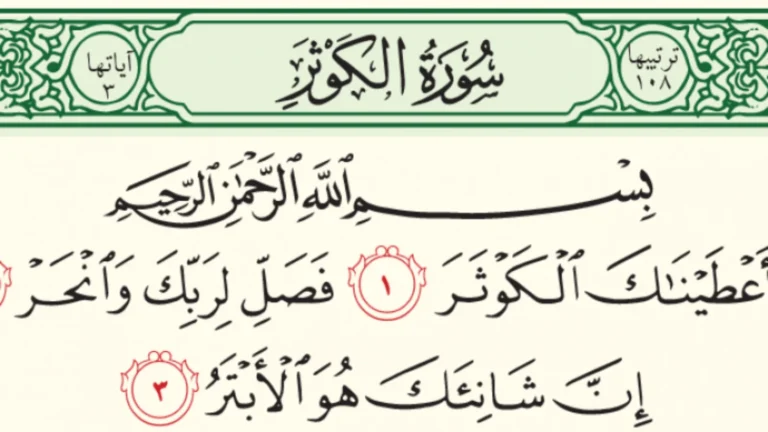 ترتيبها
١٠٨
سُورَةُ الكَوْثَرِ
آياتها
٣
بِسْمِ ٱللَّهِ ٱلرَّحْمَٰنِ ٱلرَّحِيمِ
أَعْطَيْنَٰكَ ٱلْكَوْثَرَ ١ فَصَلِّ لِرَبِّكَ وَٱنْحَرْ
إِنَّ شَانِئَكَ هُوَ ٱلْأَبْتَرُ ٣